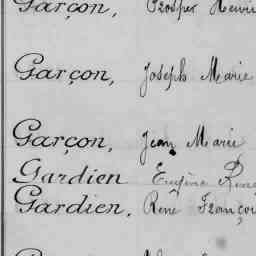 Garçon, Prosper Henri
Garçon, Joseph Marie
Garçon, Jean Marie
Gardien Eugène René
Gardien, René Françoi